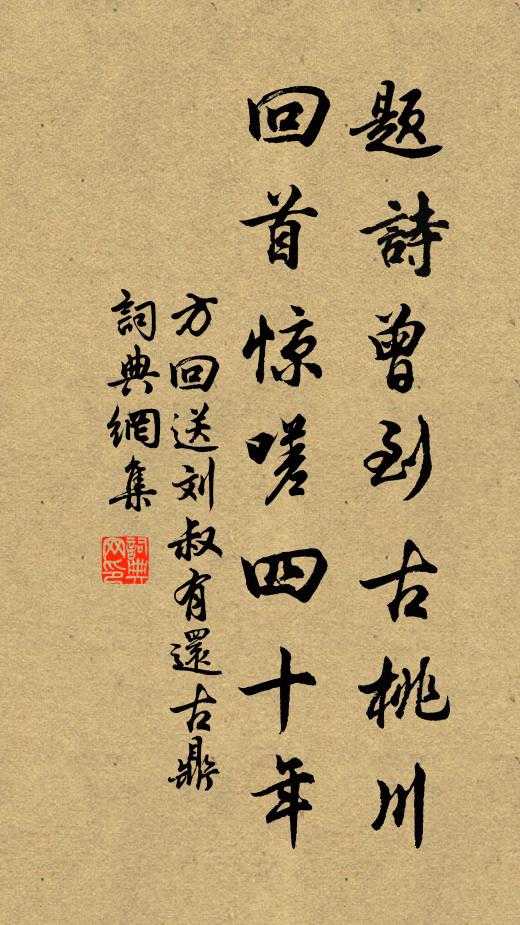 題詩曾到古桃川
回首惊嗟四十年
方回送刘叔有還古鼎
詞典網集
詞典网印